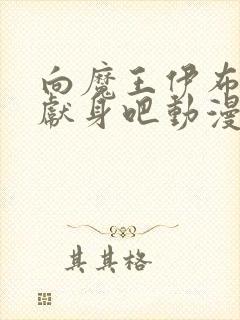 向魔王伊布
獻身吧動漫
其其格